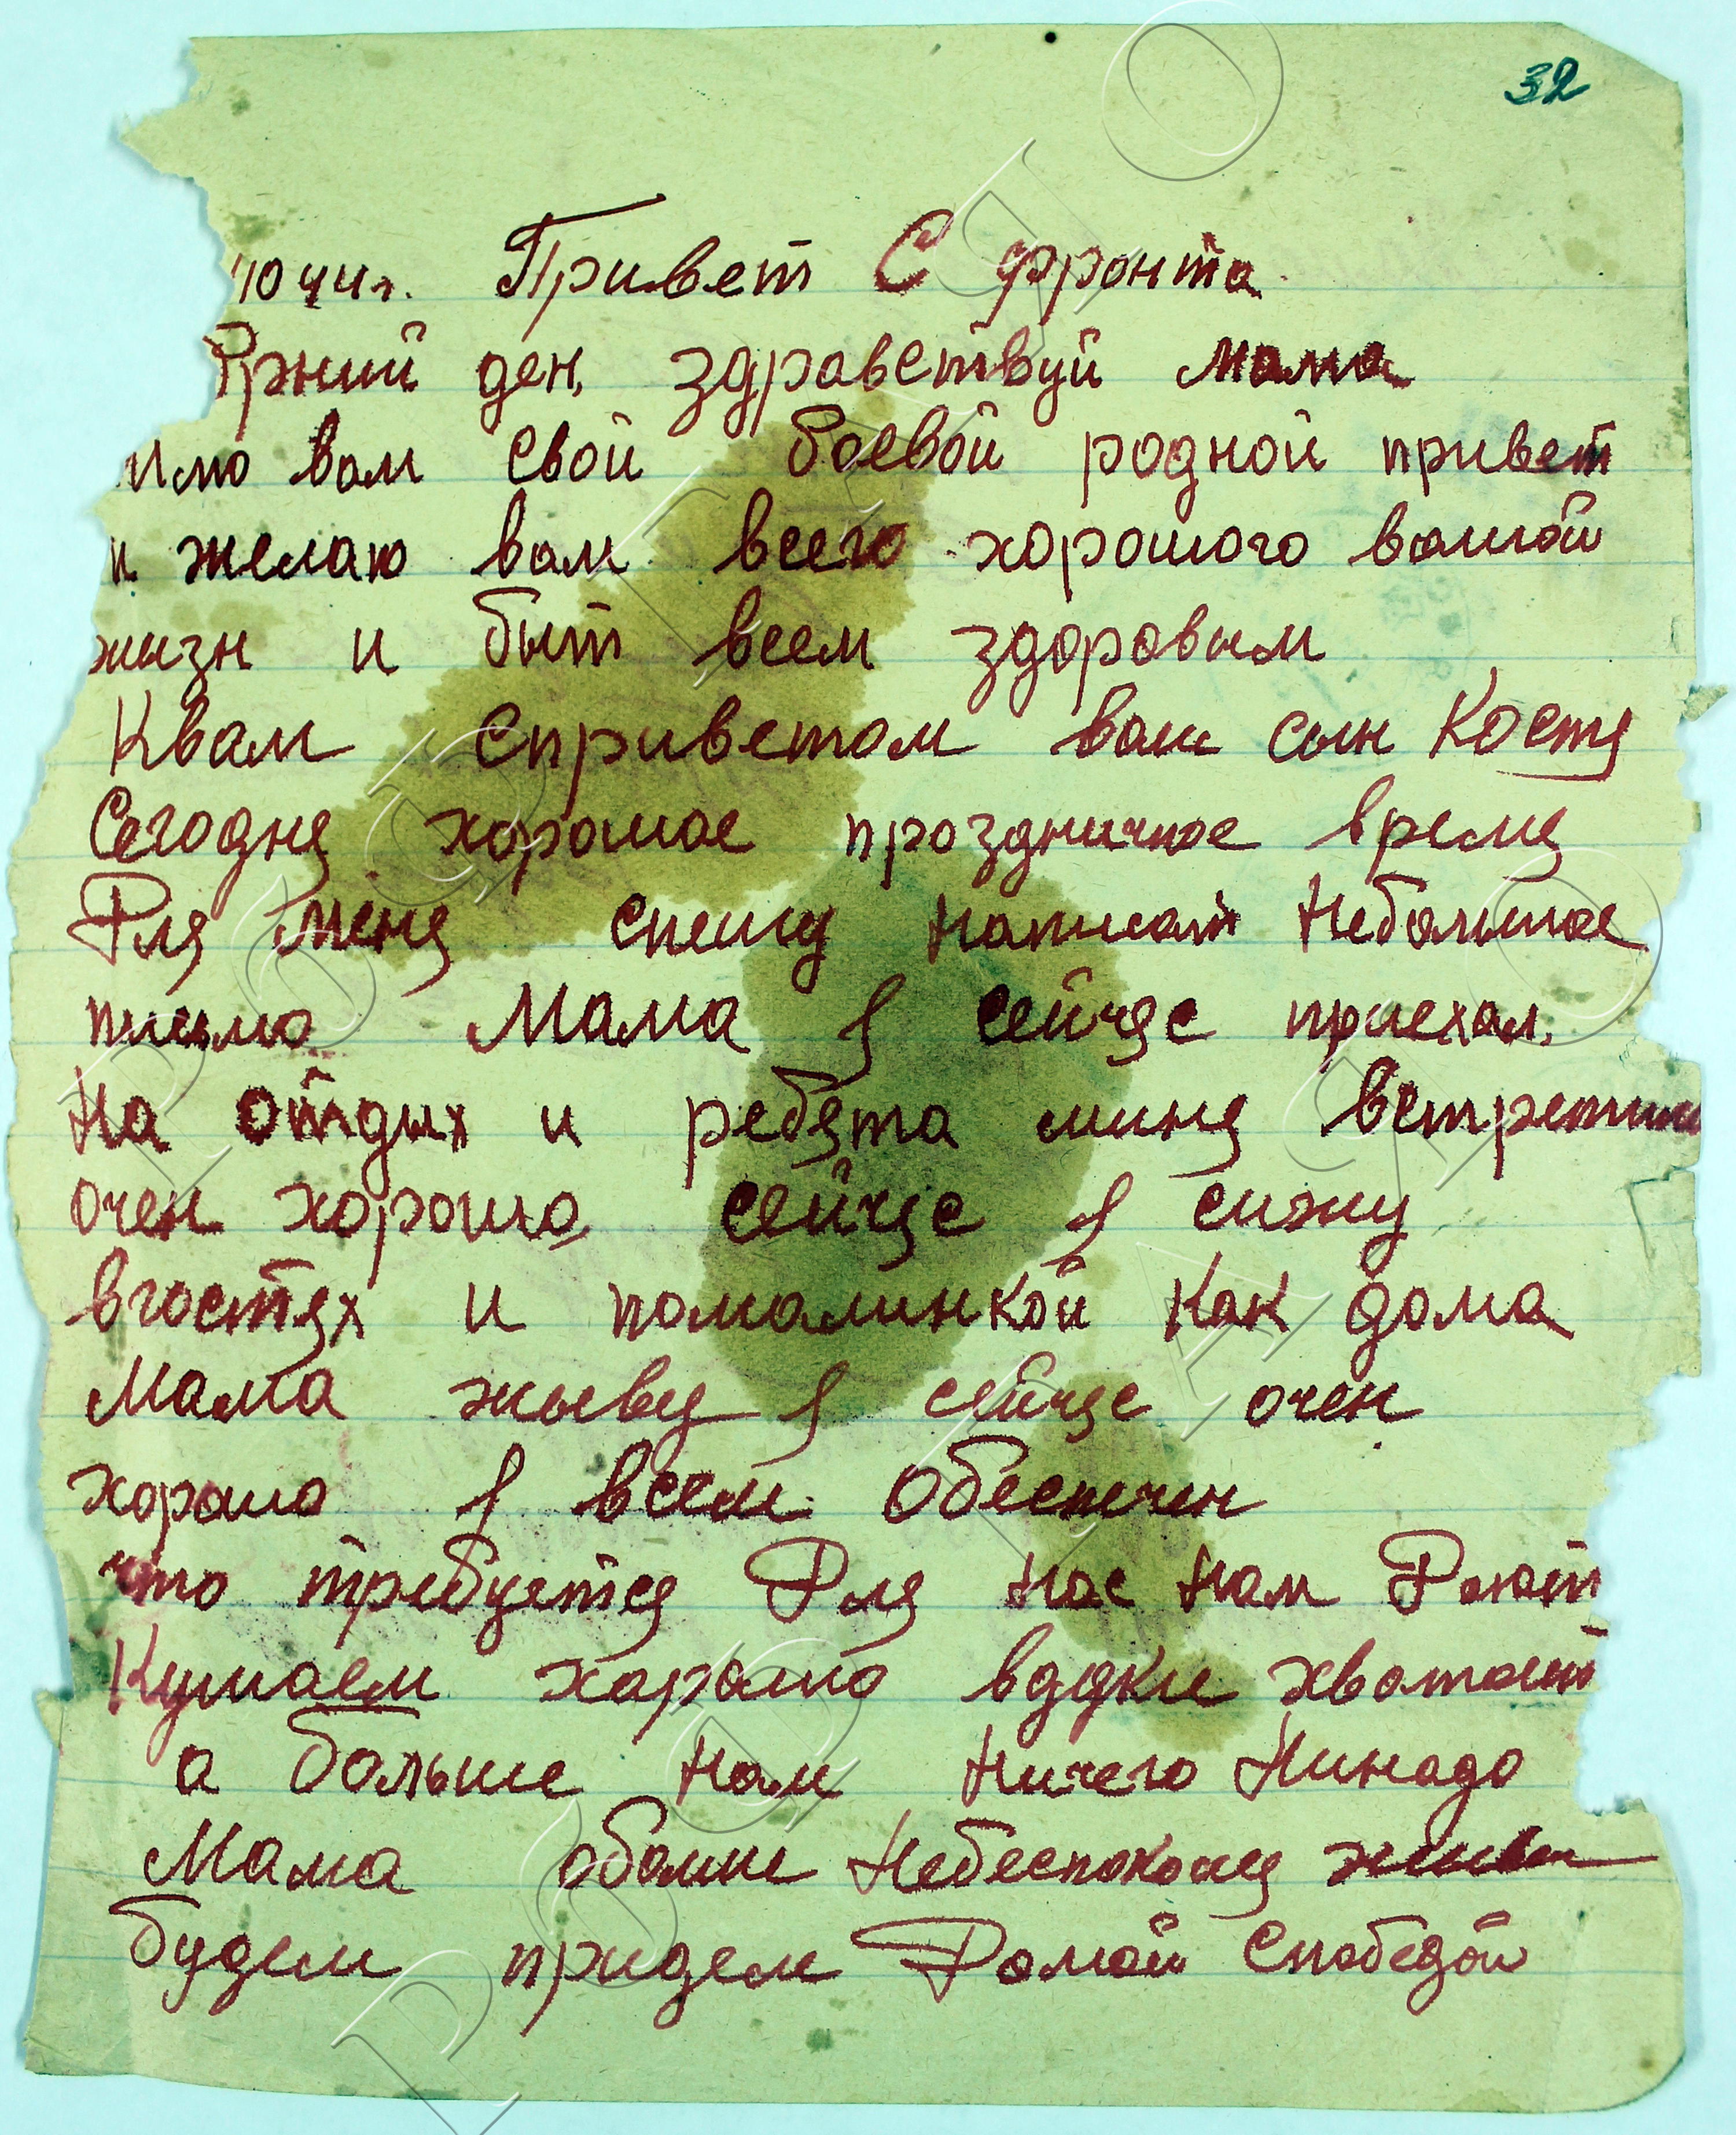 32
10 44г. Привет С фронта
Дрний ден, здравствуй мама
илю вам свой боевой родной привет
и желаю вам всего хорошого вашой
жизн и быт всем здоровым
Квам Сприветом ваш сын Костя
Сегодня хорошое праздничное время
Для меня спешу написат небольшое
письмо Мама я сейчас приехал,
на отдых и ребята миня встретили
очен хорошо, сейчас я сижу
вгостях и помалинкой как дома
Мама жыву я сейчас очен
хорошо я всем обеспечен
что требуется Для нас нам Дают
Кушаем харошо водки хватает
а больше нам ничего Нинадо
Мама обомне Небеспокоця живы
будем придем Домой Спобедой